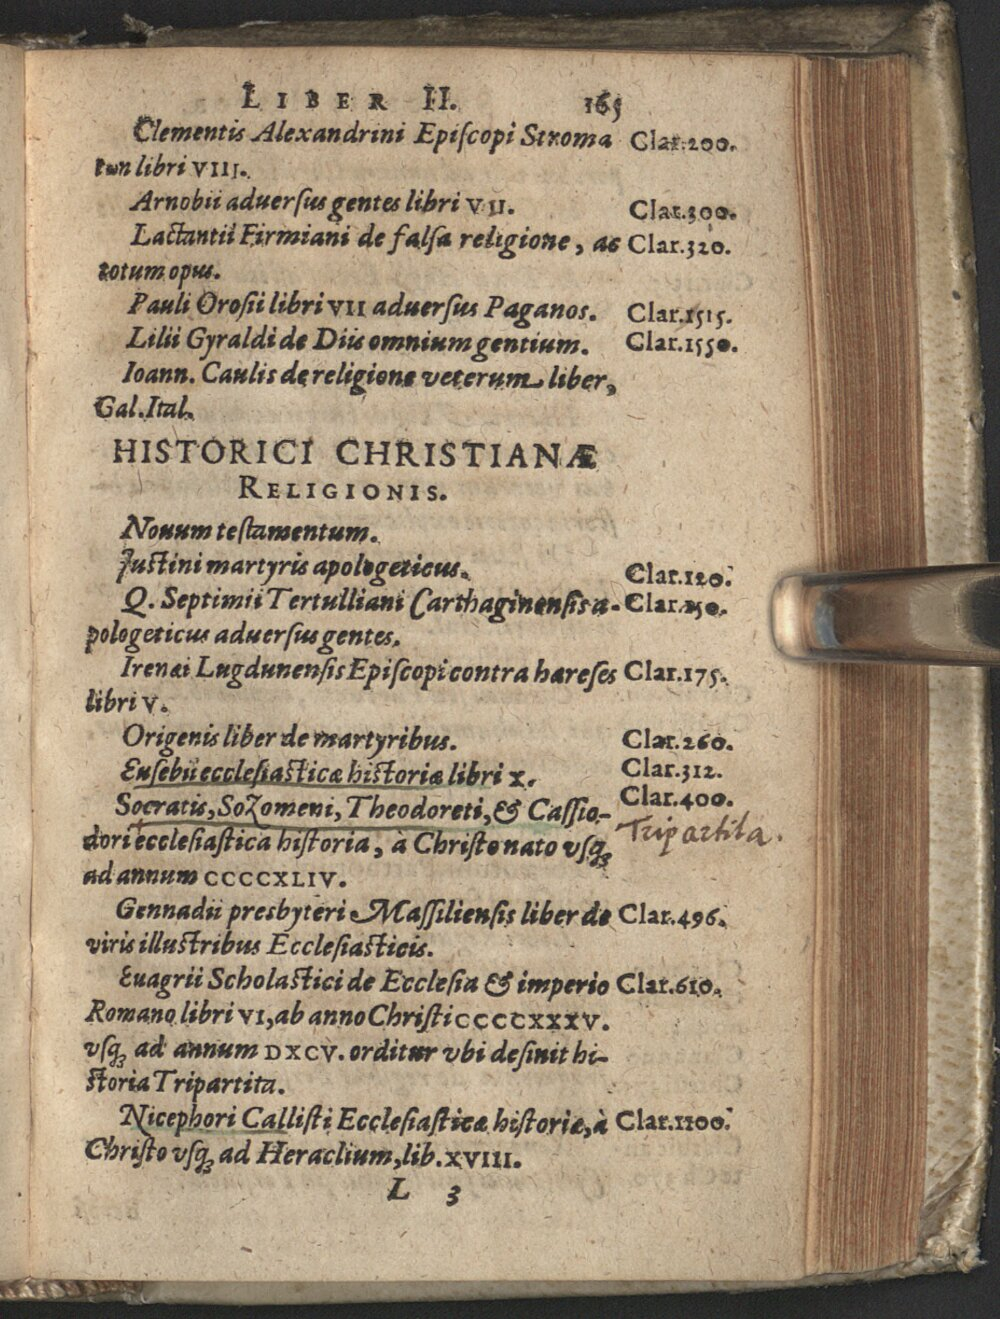 LIBER II. 165
Clementis Alexandrini Episcopi Stroma Clar.200.
τωn libri VIII.
Arnobii aduersus gentes libri VII. Clar.300.
Lactantii Firmiani de falsa religione, ac Clar.320.
totum opus.
Pauli Orosii libri VII aduersus Paganos. Clar.1515.
Lilii Gyraldi de Diis omnium gentium. Clar.1550.
Ioann. Caulis de religione veterum liber,
Gal.Ital.
HISTORICI CHRISTIANÆ
RELIGIONIS.
Nouum testamentum.
Justini martyris apologeticus. Clar.120.
Q. Septimii Tertulliani Carthaginensis a- Clar.150.
pologeticus aduersus gentes.
Irenæi Lugdunensis Episcopi contra hæreses Clar.175.
libri V.
Origenis liber de martyribus. Clar.260.
Eusebii ecclesiasticæ historiæ libri X. Clar.312.
Socratis, Sozomeni, Theodoreti, & Cassio- Clar.400.
dori ecclesiastica historia, à Christo nato vsq; Tripartita.
ad annum CCCCXLIV.
Gennadii presbyteri Massiliensis liber de Clar.496.
viris illustribus Ecclesiasticis.
Euagrii Scholastici de Ecclesia & imperio Clar.610.
Romano libri VI, ab anno Christi CCCCXXXV.
vsq; ad annum DXCV. orditur vbi desinit hi-
storia Tripartita.
Nicephori Callisti Ecclesiasticæ historiæ, à Clar.1100.
Christo vsq; ad Heraclium, lib. XVIII.
L 3